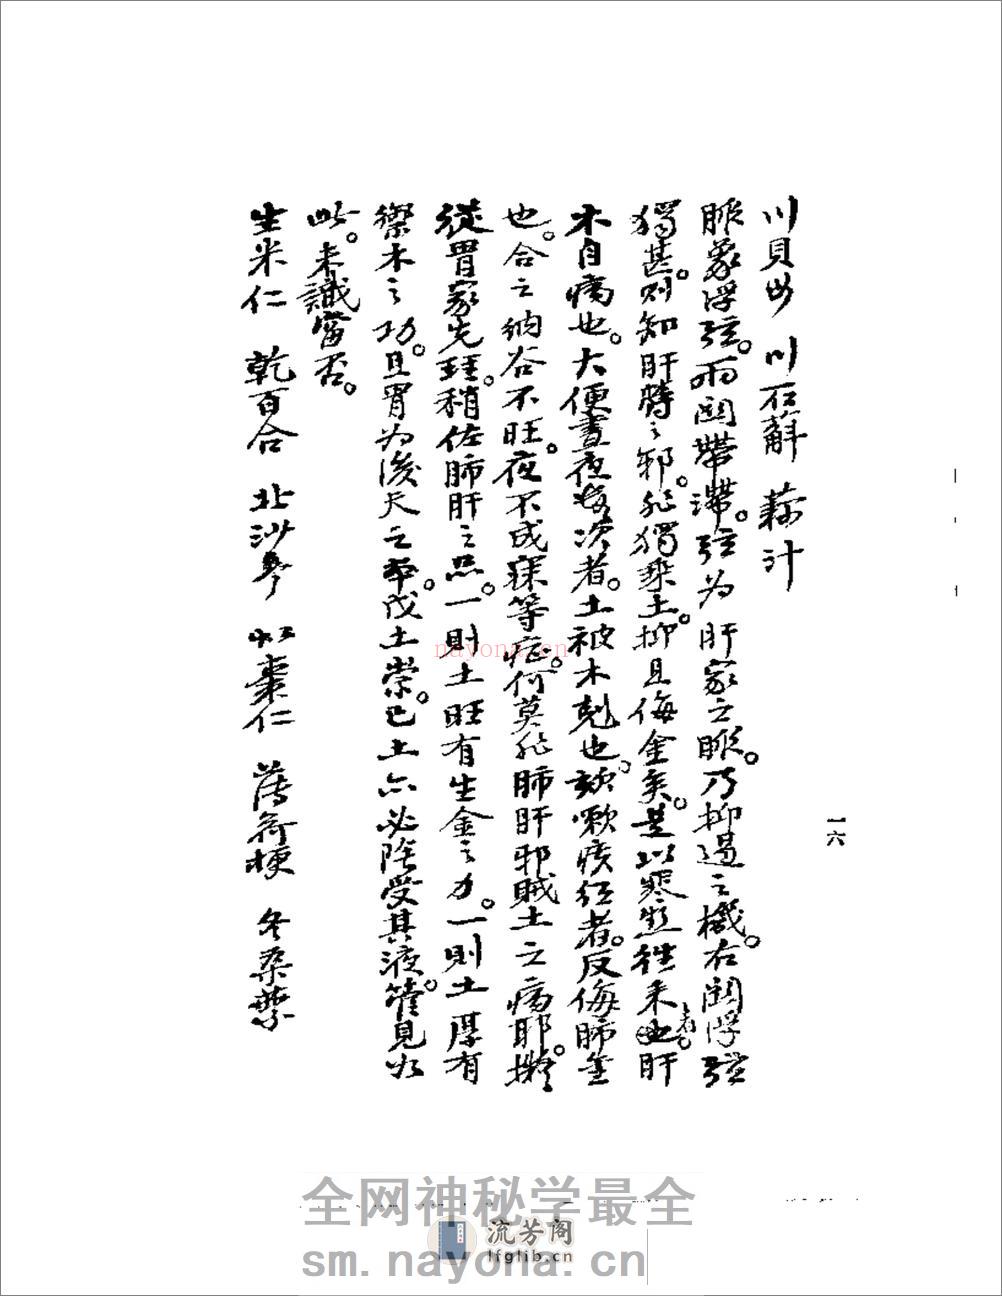 川貝母 川石斛 藕汁
脈象浮弦。兩關帶滯。弦为肝家之脈。乃抑遏之機。右關浮弦
獨甚。则知肝勝之邪。非獨乘土。抑且侮金矣。是以寒熱徃来者。肝
木自病也。大便晝夜幾次者。土被木剋也。欬嗽痰红者。反侮肺金
也。合之纳谷不旺。夜不成寐等症。何莫非肺肝邪賊土之病耶。擬
從胃家先理。稍佐肺肝之品。一則土旺有生金之力。一則土厚有
禦木之功。且胃为後天之本。戊土崇。己土亦必陰受其液。管見如
此。未識當否。
生米仁 乾百合 北沙參 炒棗仁 薄荷梗 冬桑葉
一六
nayona.cn
全网神秘学最全
流芳阁
lfglib.cn
sm.nayona.cn